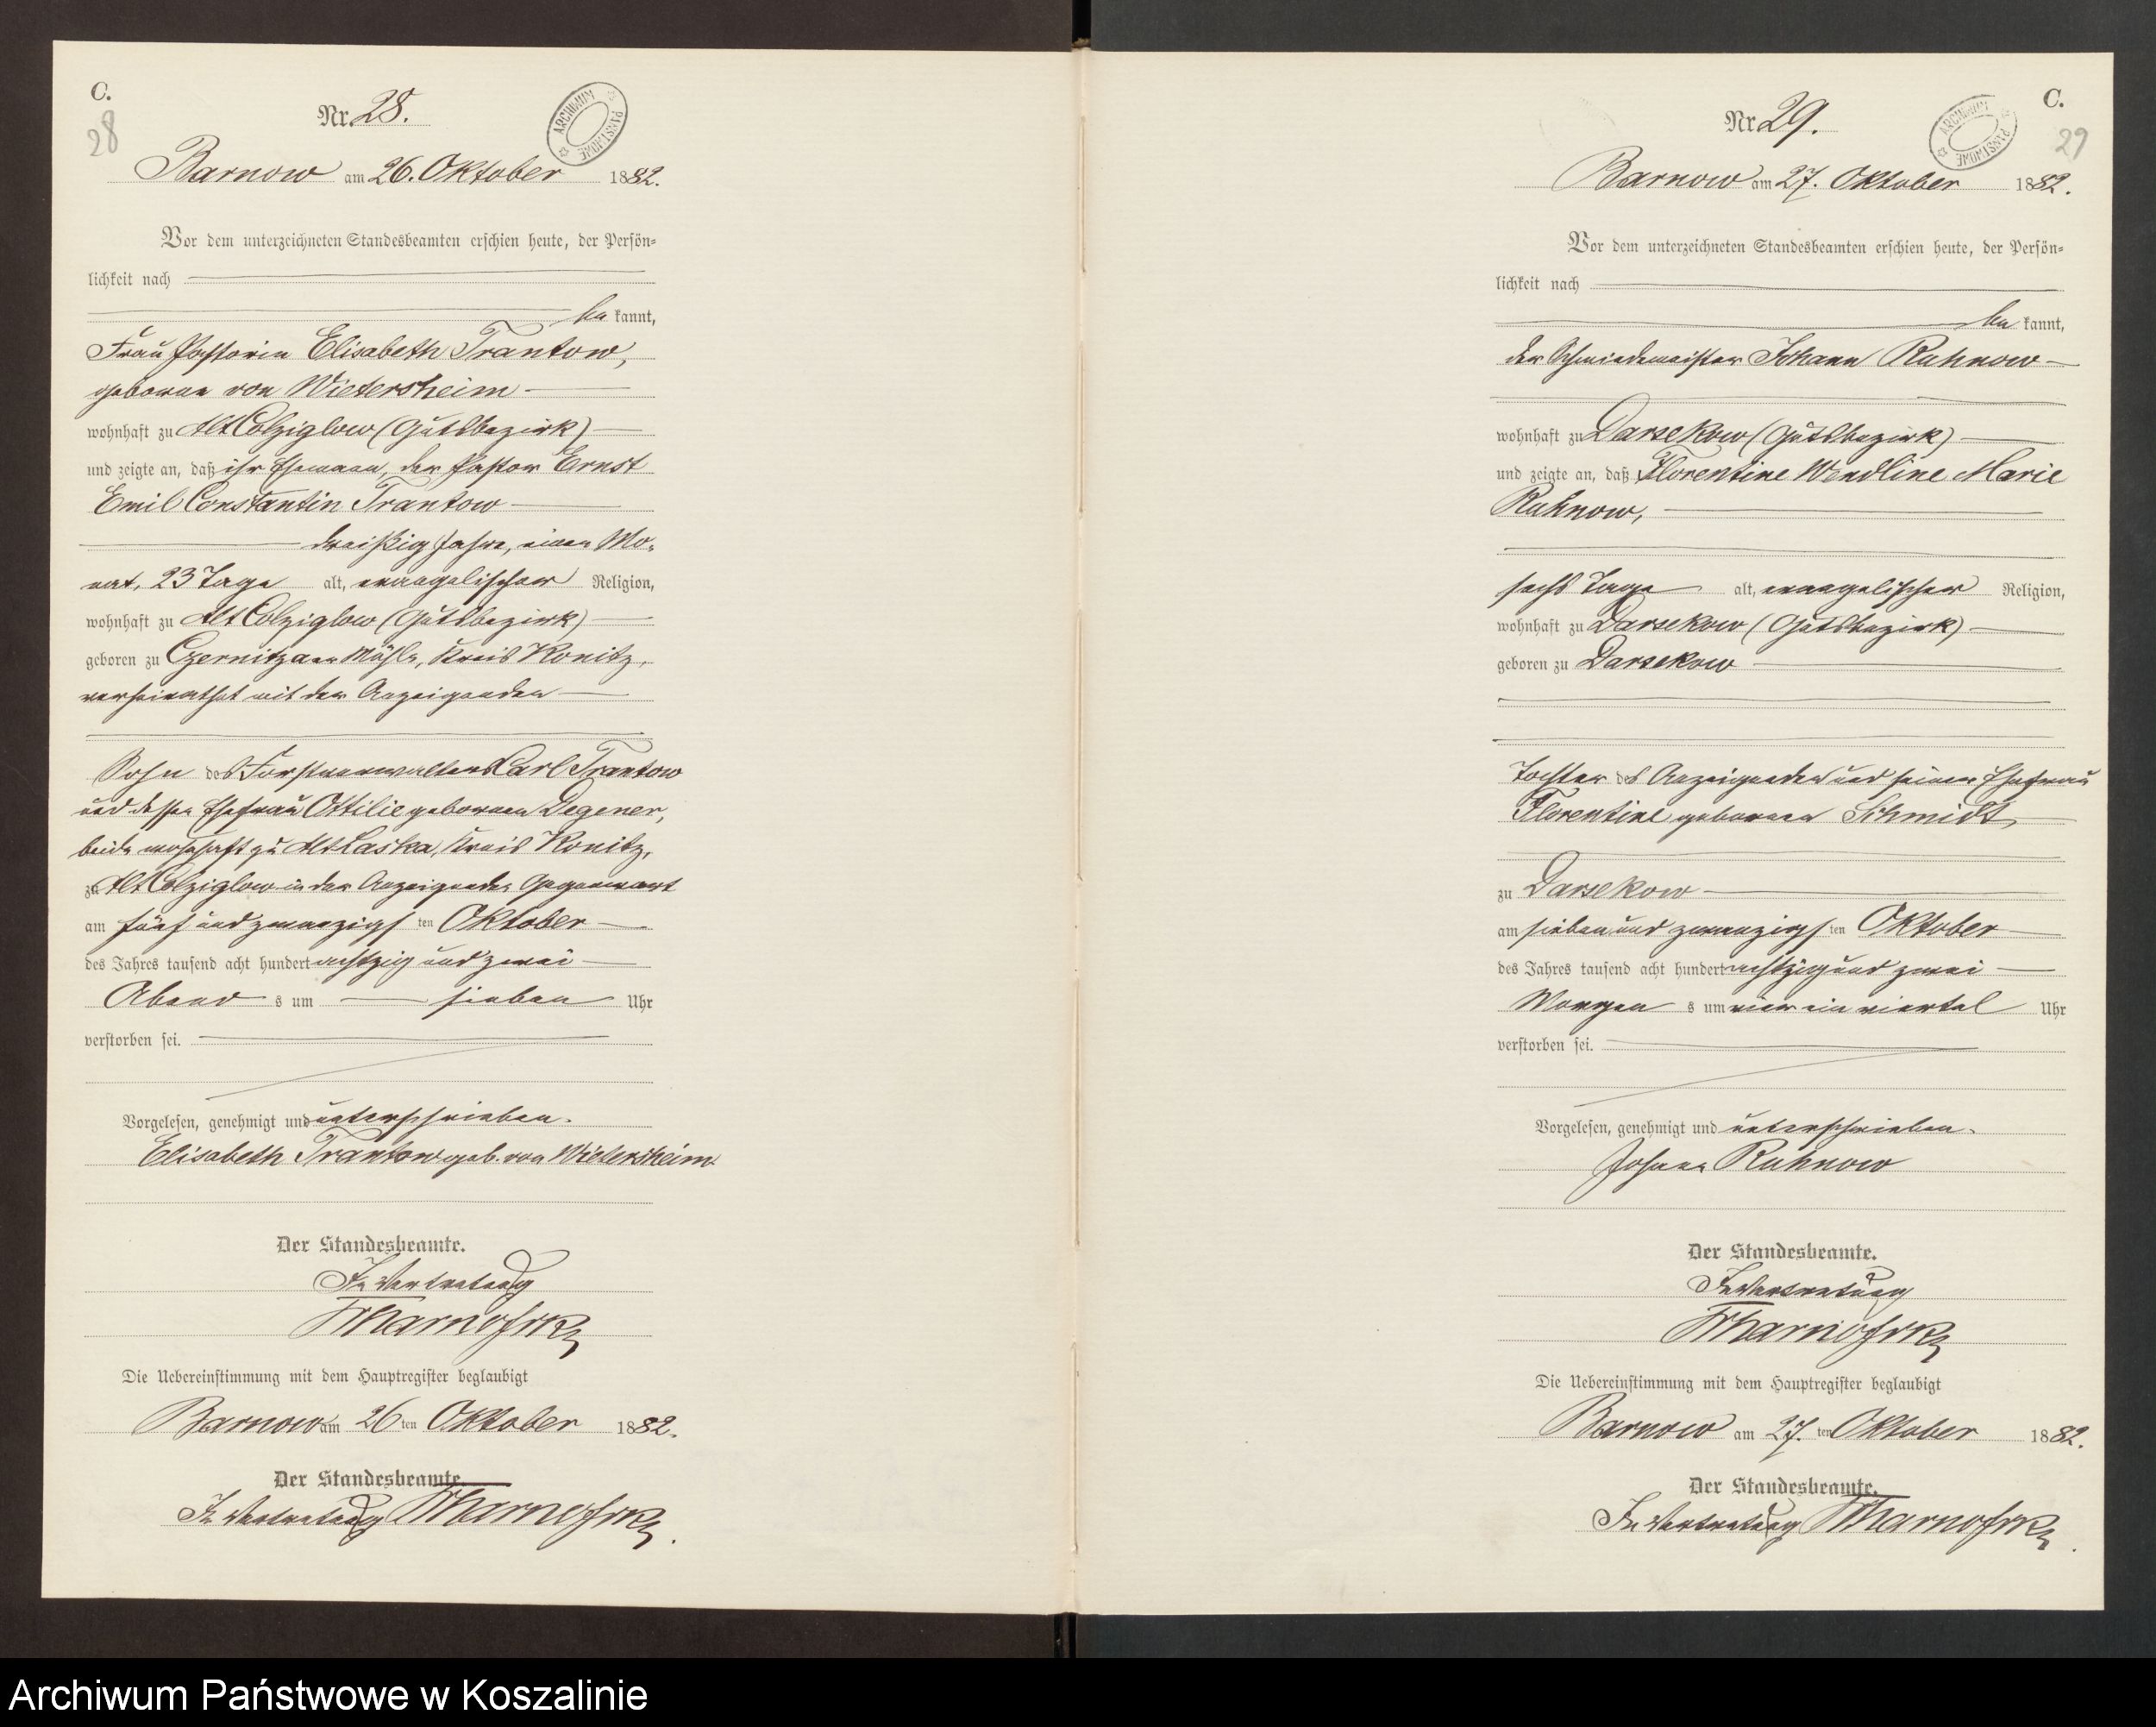 C.
28
Nr. 28.
ARCHIWUM PAŃSTWOWE
Barnow am 26. Oktober 1882.
Vor dem unterzeichneten Standesbeamten erschien heute, der Persön=
lichkeit nach
be kannt,
Frau Pastorin Elisabeth Trantow,
geborne von Wietersheim
wohnhaft zu Alt Colziglow (Gutsbezirk)
und zeigte an, daß ihr Ehemann, der Pastor Ernst
Emil Constantin Trantow
dreißig Jahre, einen Mo-
nat, 23 Tage alt, evangelischer Religion,
wohnhaft zu Alt Colziglow (Gutsbezirk)
geboren zu Czernitzaer Mühle, Kreis Konitz,
verheirathet mit der Anzeigenden
Sohn des Forstverwalters Carl Trantow
und dessen Ehefrau Ottilie gebornen Degener,
beide wohnhaft zu Alt Laska, Kreis Konitz,
zu Alt Colziglow in der Anzeigenden Gegenwart
am fünf und zwanzigs ten Oktober
des Jahres tausend acht hundert achtzig und zwei
Abend s um sieben Uhr
verstorben sei.
Vorgelesen, genehmigt und unterschrieben.
Elisabeth Trantow geb. von Wietersheim.
Der Standesbeamte.
In Vertretung
Die Uebereinstimmung mit dem Hauptregister beglaubigt
Barnow am 26 ten Oktober 1882.
Der Standesbeamte.
In Vertretung
C.
29
Nr. 29.
ARCHIWUM PAŃSTWOWE
Barnow am 27. Oktober 1882.
Vor dem unterzeichneten Standesbeamten erschien heute, der Persön=
lichkeit nach
be kannt,
der Schmiedemeister Johann Ruhnow
wohnhaft zu Darsekow (Gutsbezirk)
und zeigte an, daß Florentine Wendline Marie
Ruhnow,
sechs Tage alt, evangelischer Religion,
wohnhaft zu Darsekow (Gutsbezirk)
geboren zu Darsekow
Tochter des Anzeigenden und seiner Ehefrau
Florentine gebornen Schmidt,
zu Darsekow
am sieben und zwanzigs ten Oktober
des Jahres tausend acht hundert achtzig und zwei
Morgen s um vier ein viertel Uhr
verstorben sei.
Vorgelesen, genehmigt und unterschrieben.
Johann Ruhnow
Der Standesbeamte.
In Vertretung
Die Uebereinstimmung mit dem Hauptregister beglaubigt
Barnow am 27. ten Oktober 1882.
Der Standesbeamte.
In Vertretung
Archiwum Państwowe w Koszalinie